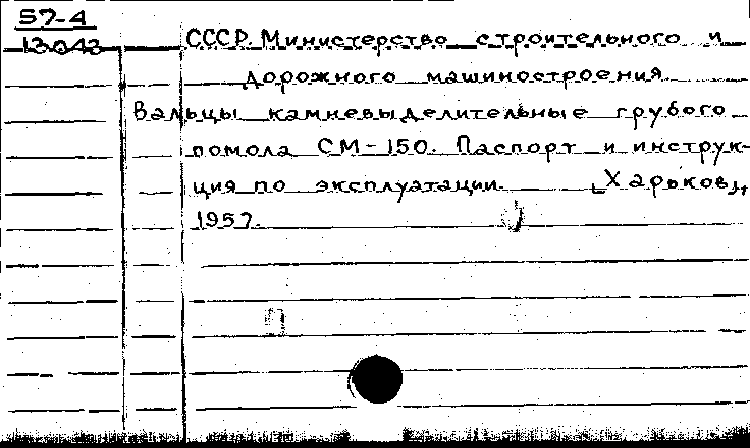 57-4
13043
СССР. Министерство строительного и
дорожного машиностроения.
Вальцы камневыделительные грубого
помола СМ-150. Паспорт и инструк-
ция по эксплуатации. [Харьков],
1957.